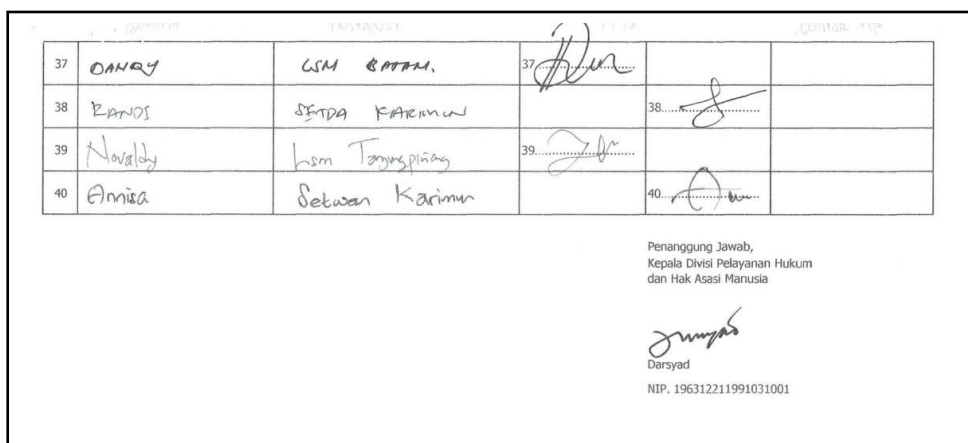 37 DANQY LSM BATAM. 37
38 RANDI SETDA KARIMUN 38
39 Novaldy Lsm Tanjungpinang 39
40 Annisa Setwan Karimun 40
Penanggung Jawab,
Kepala Divisi Pelayanan Hukum
dan Hak Asasi Manusia
Darsyad
NIP. 196312211991031001